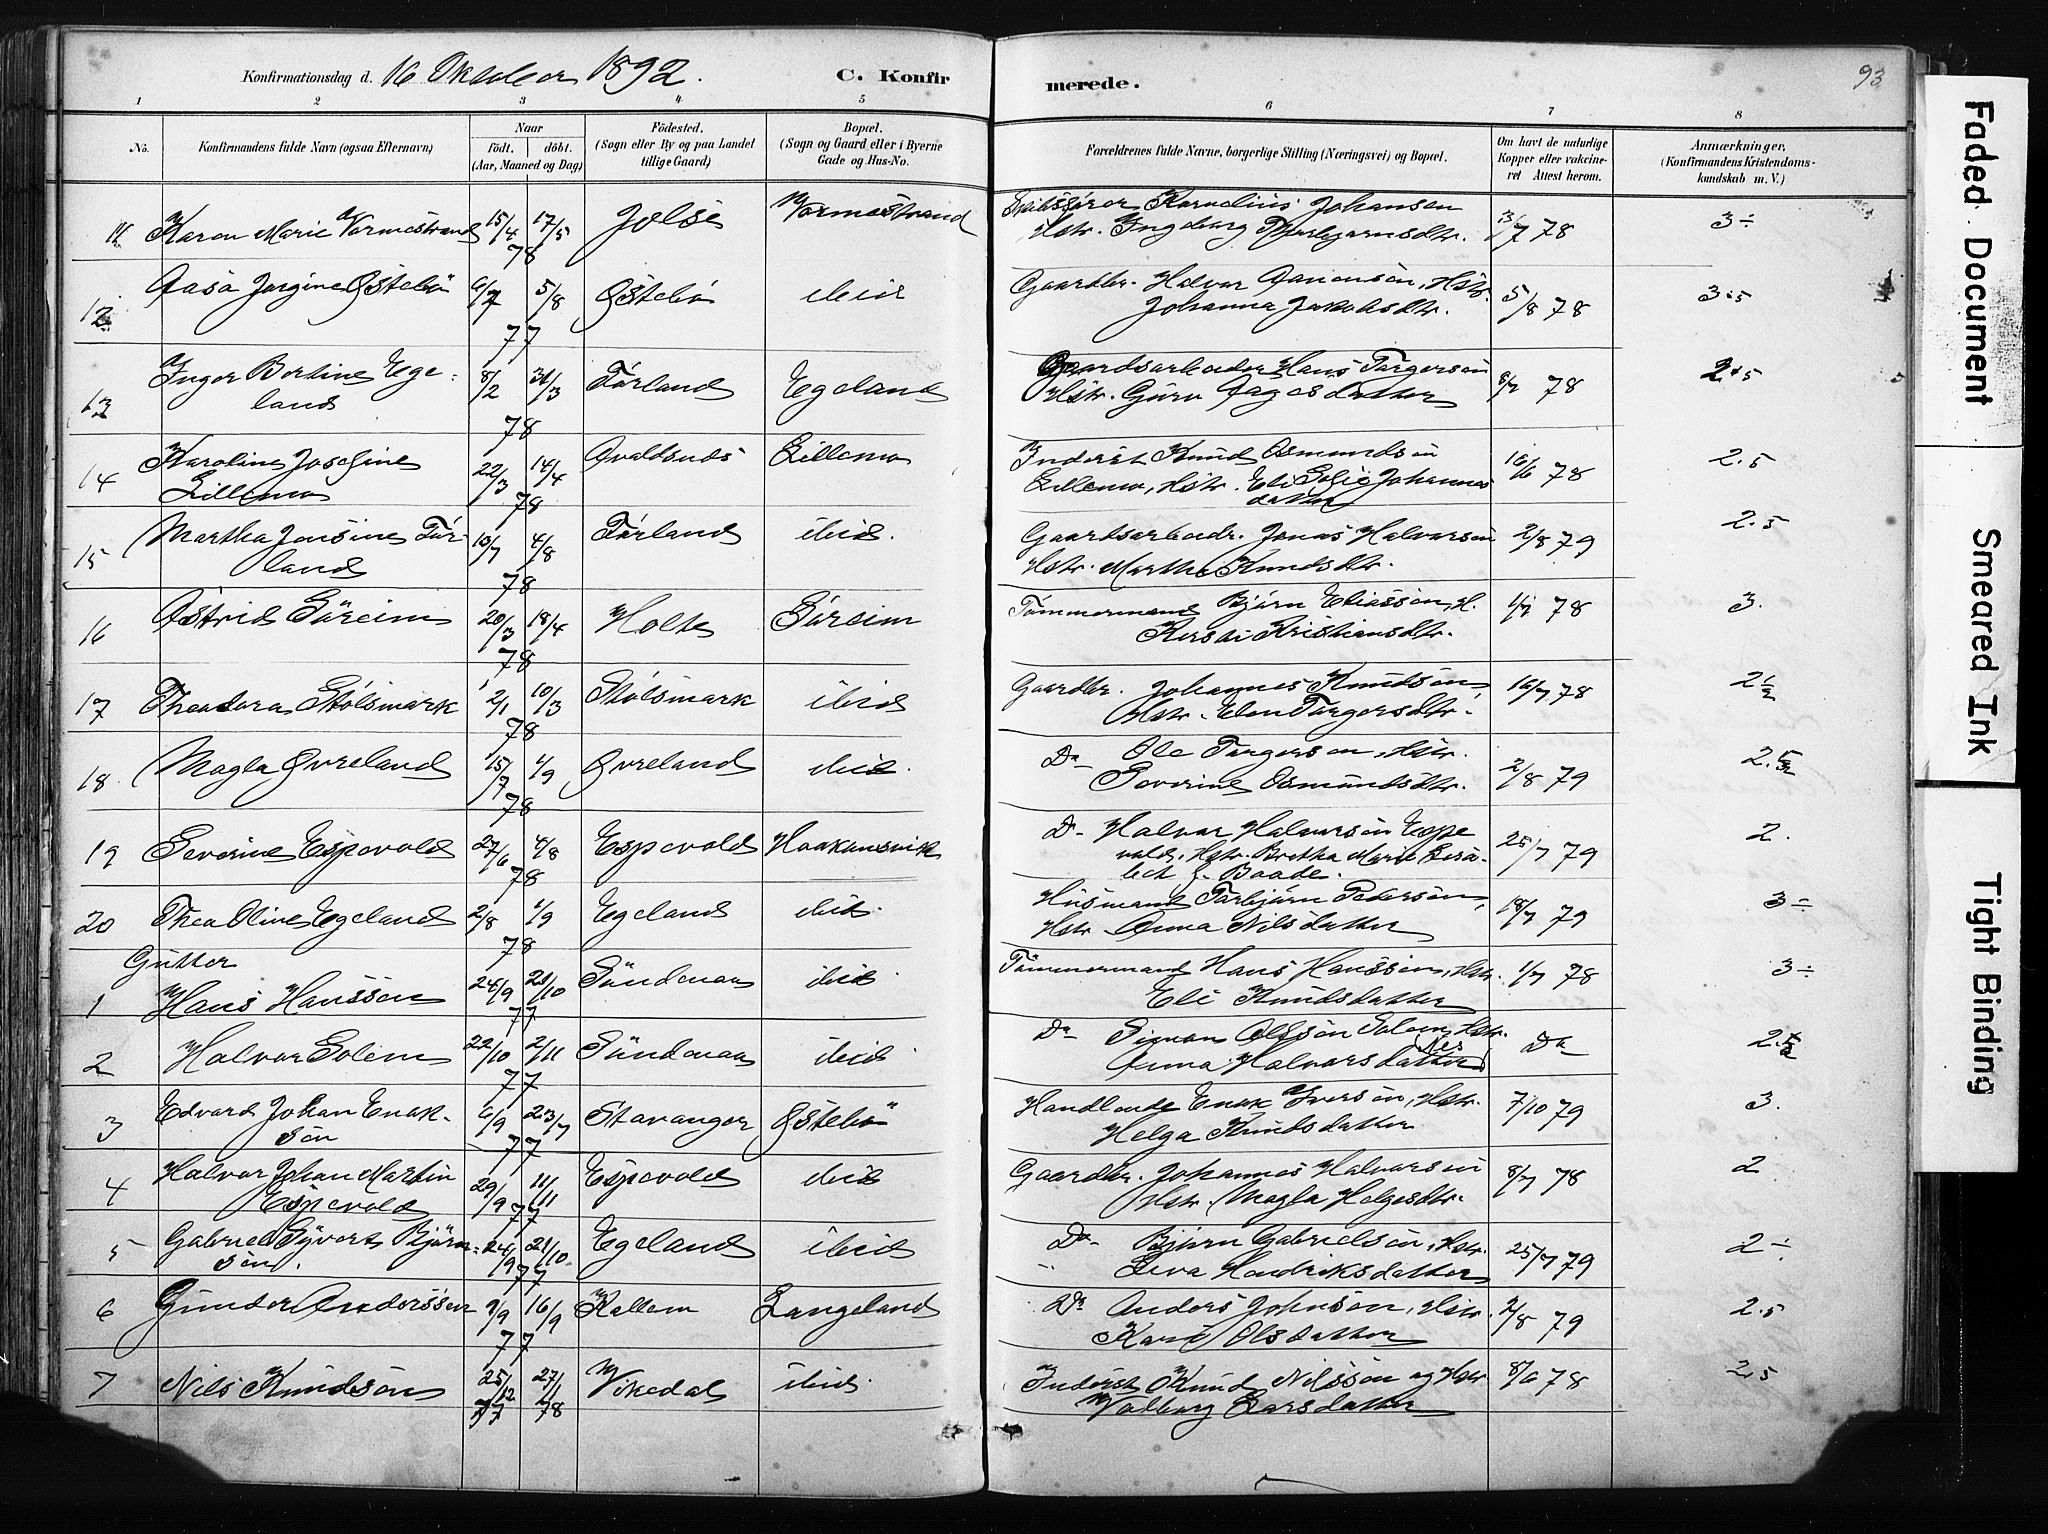 Konfirmationsdag d. 16 Oktober 1892. C. Konfirmerede. 93
1 2 3 4. 5 6 7 8
No. Konfirmandens fulde Navn (ogsaa Efternavn) Naar födt. döbt. (Aar, Maaned og Dag) Födested. (Sogn eller By og paa Landet tillige Gaard) Bopæl. (Sogn og Gaard eller i Byerne Gade og Hus-No. Forældrenes fulde Navne, borgerlige Stilling (Næringsvei) og Bopæl. Om havt de naturlige Kopper eller vakcineret Attest herom. Anmærkninger. (Konfirmandens Kristendomskundskab m. V.)
11 Karen Marie Vormestrand 15/4 17/5 78 Jelse Vormestrand Kornelius Johansen Hstr. Ingeborg Thorbjørnsdtr. 13/7 78 3÷
12 Aasa Jorgine Østebö 6/7 5/8 77 Østebö ibid Gaardbr. Halvor Aanensön, Hstr. Johanna Jakobsdtr. 5/8 78 3.5
13 Inger Bertine Egeland 8/2 31/3 78 Törland Egeland Gaardsarbeider Hans Torgersön Hstr. Guro Aagesdatter 8/7 78 2.5
14 Karoline Josefine Lillemo 22/3 14/4 78 Avaldsnes Lillemo Inderst Knud Osmundsön Lillemo, Hstr. Eli Sofie Johannesdatter 16/6 78 2.5
15 Martha Jonsine Törland 10/7 4/8 78 Törland ibid. Gaardsarbeidr. Jonas Halvorsön Hstr. Martha Knudsdtr. 2/8 79 2.5
16 Østrid Söreim 20/3 18/4 78 Holte Söreim Tömmermand Björn Eliassön, H. Kersti Kristiansdtr. 1/7 78 3.
17 Theodora Stölsmark 2/1 10/3 78 Stölsmark ibid Gaardbr. Johannes Knudsön, Hstr. Elen Torgersdtr. 16/7 78 2 1/2
18. Magla Øvreland 15/7 1/9 78 Øvreland ibid. Do Ole Torgersön, Hstr. Severine Osmundsdtr. 2/8 79 2.
19 Severine Espevold 27/6 4/8 78 Espevold Haakonsvik Do Halvor Halvorsön Espevold, Hstr. Bertha Marie Lisabeth f. Baade. 25/7 79 2.
20 Thea Oline Egeland 2/8 1/9 78 Egeland ibid. Husmand Torbjörn Pedersön, Hstr. Anna Nilsdatter 18/7 79 3÷
Gutter
1 Hans Hanssön 24/9 21/10 77 Söndenaa ibid. Tömmermand Hans Hanssön, Hstr. Eli Knudsdatter 1/7 78 3÷
2 Halvor Solem 22/10 2/11 77 Söndenaa ibid. Do Simon Olssön Solem, Hstr. Anna Halvorsdatter Do 2.
3 Edvard Johan Enoksön 6/9 23/7 77 Stavanger Østebö Handlende Enok Iversön, Hstr. Helga Knudsdatter 7/10 79 3.
4 Halvor Johan Martin Espevold 29/9 11/11 77 Espevold ibid Gaardbr. Johannes Halvorsön Hstr. Magla Helgesdtr. 8/7 78 2
5 Gabriel Sÿvert Björnsön. 24/9 21/10 77 Egeland ibid Do Björn Gabrielsön, Hstr. Siva Hendriksdatter 25/7 79 2÷
6 Gunder Andersson 9/9 16/9 77 Kallem Langeland Do Anders Johnsön, Hstr. Kari Olsdatter 2/8 79 2.5
7 Nils Knudsön 25/12 77 27/1 78 Vikedal ibid. Inderst Knud Nilssön og Hstr Valborg Larsdatter 8/6 78 2.5
Faded Document
Smeared Ink
Tight Binding